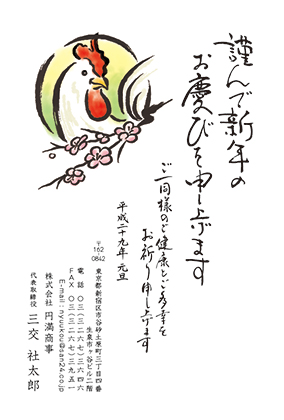 謹んで新年の
お慶びを申し上げます
ご一同様のご健康とご多幸を
お祈り申し上げます
平成二十九年 元旦
〒162-0842
東京都新宿区市谷砂土原町三丁目四番
生泉市ヶ谷ビル二階
電話 〇三(三二六七)三六四六
FAX 〇三(三二六七)三九五一
E-mail:nyuukou@san24.co.jp
株式会社 円満商事
代表取締役 三交 社太郎